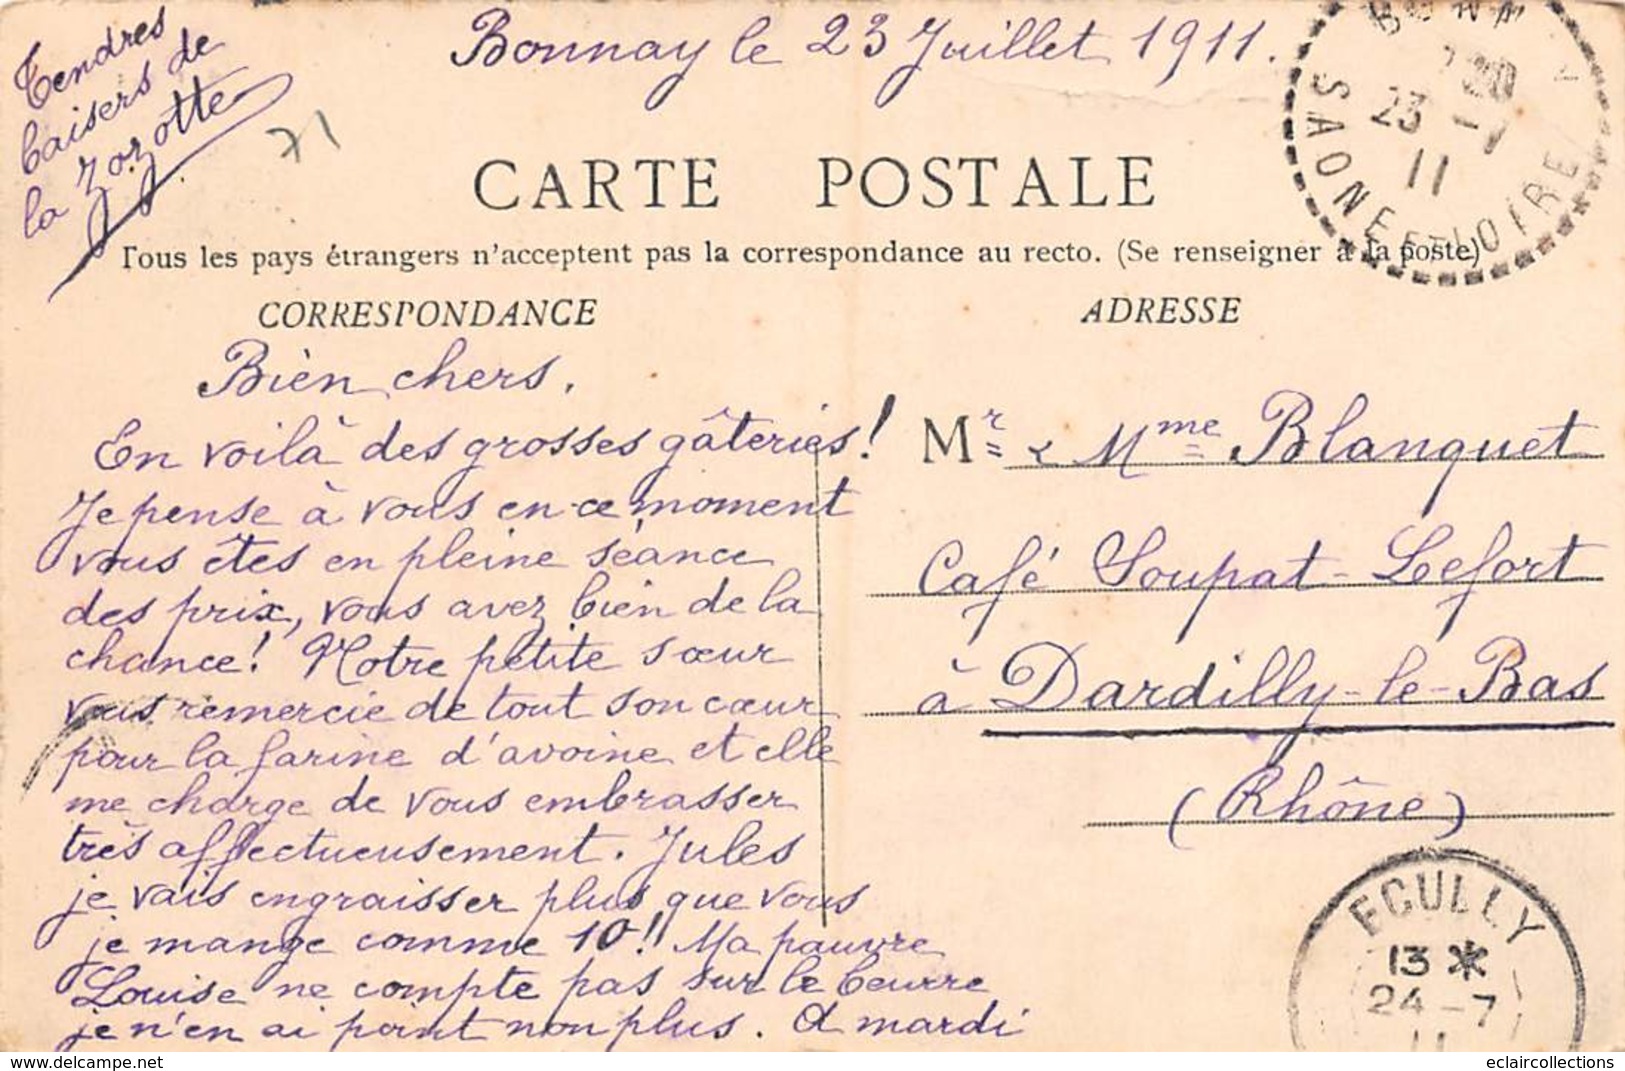 Bonnay le 23 Juillet 1911.
Tendres
baisers de
la zozotte
71
BONNAY
20
23 -7
11
SAONE-ET-LOIRE
CARTE POSTALE
Tous les pays étrangers n'acceptent pas la correspondance au recto. (Se renseigner à la poste)
CORRESPONDANCE
Bien chers.
En voilà des grosses gâteries!
Je pense à vous en ce moment
vous êtes en pleine séance
des prix, vous avez bien de la
chance! Notre petite sœur
vous remercie de tout son cœur
pour la farine d'avoine et elle
me charge de vous embrasser
très affectueusement. Jules
je vais engraisser plus que vous
je mange comme 10!! Ma pauvre
Louise ne compte pas sur le beurre
je n'en ai point non plus. A mardi
ADRESSE
Mr & Mme Blanquet
Café Soupat-Lefort
à Dardilly-le-Bas
(Rhône)
ECULLY
13 *
24 -7
11
eclaircollections